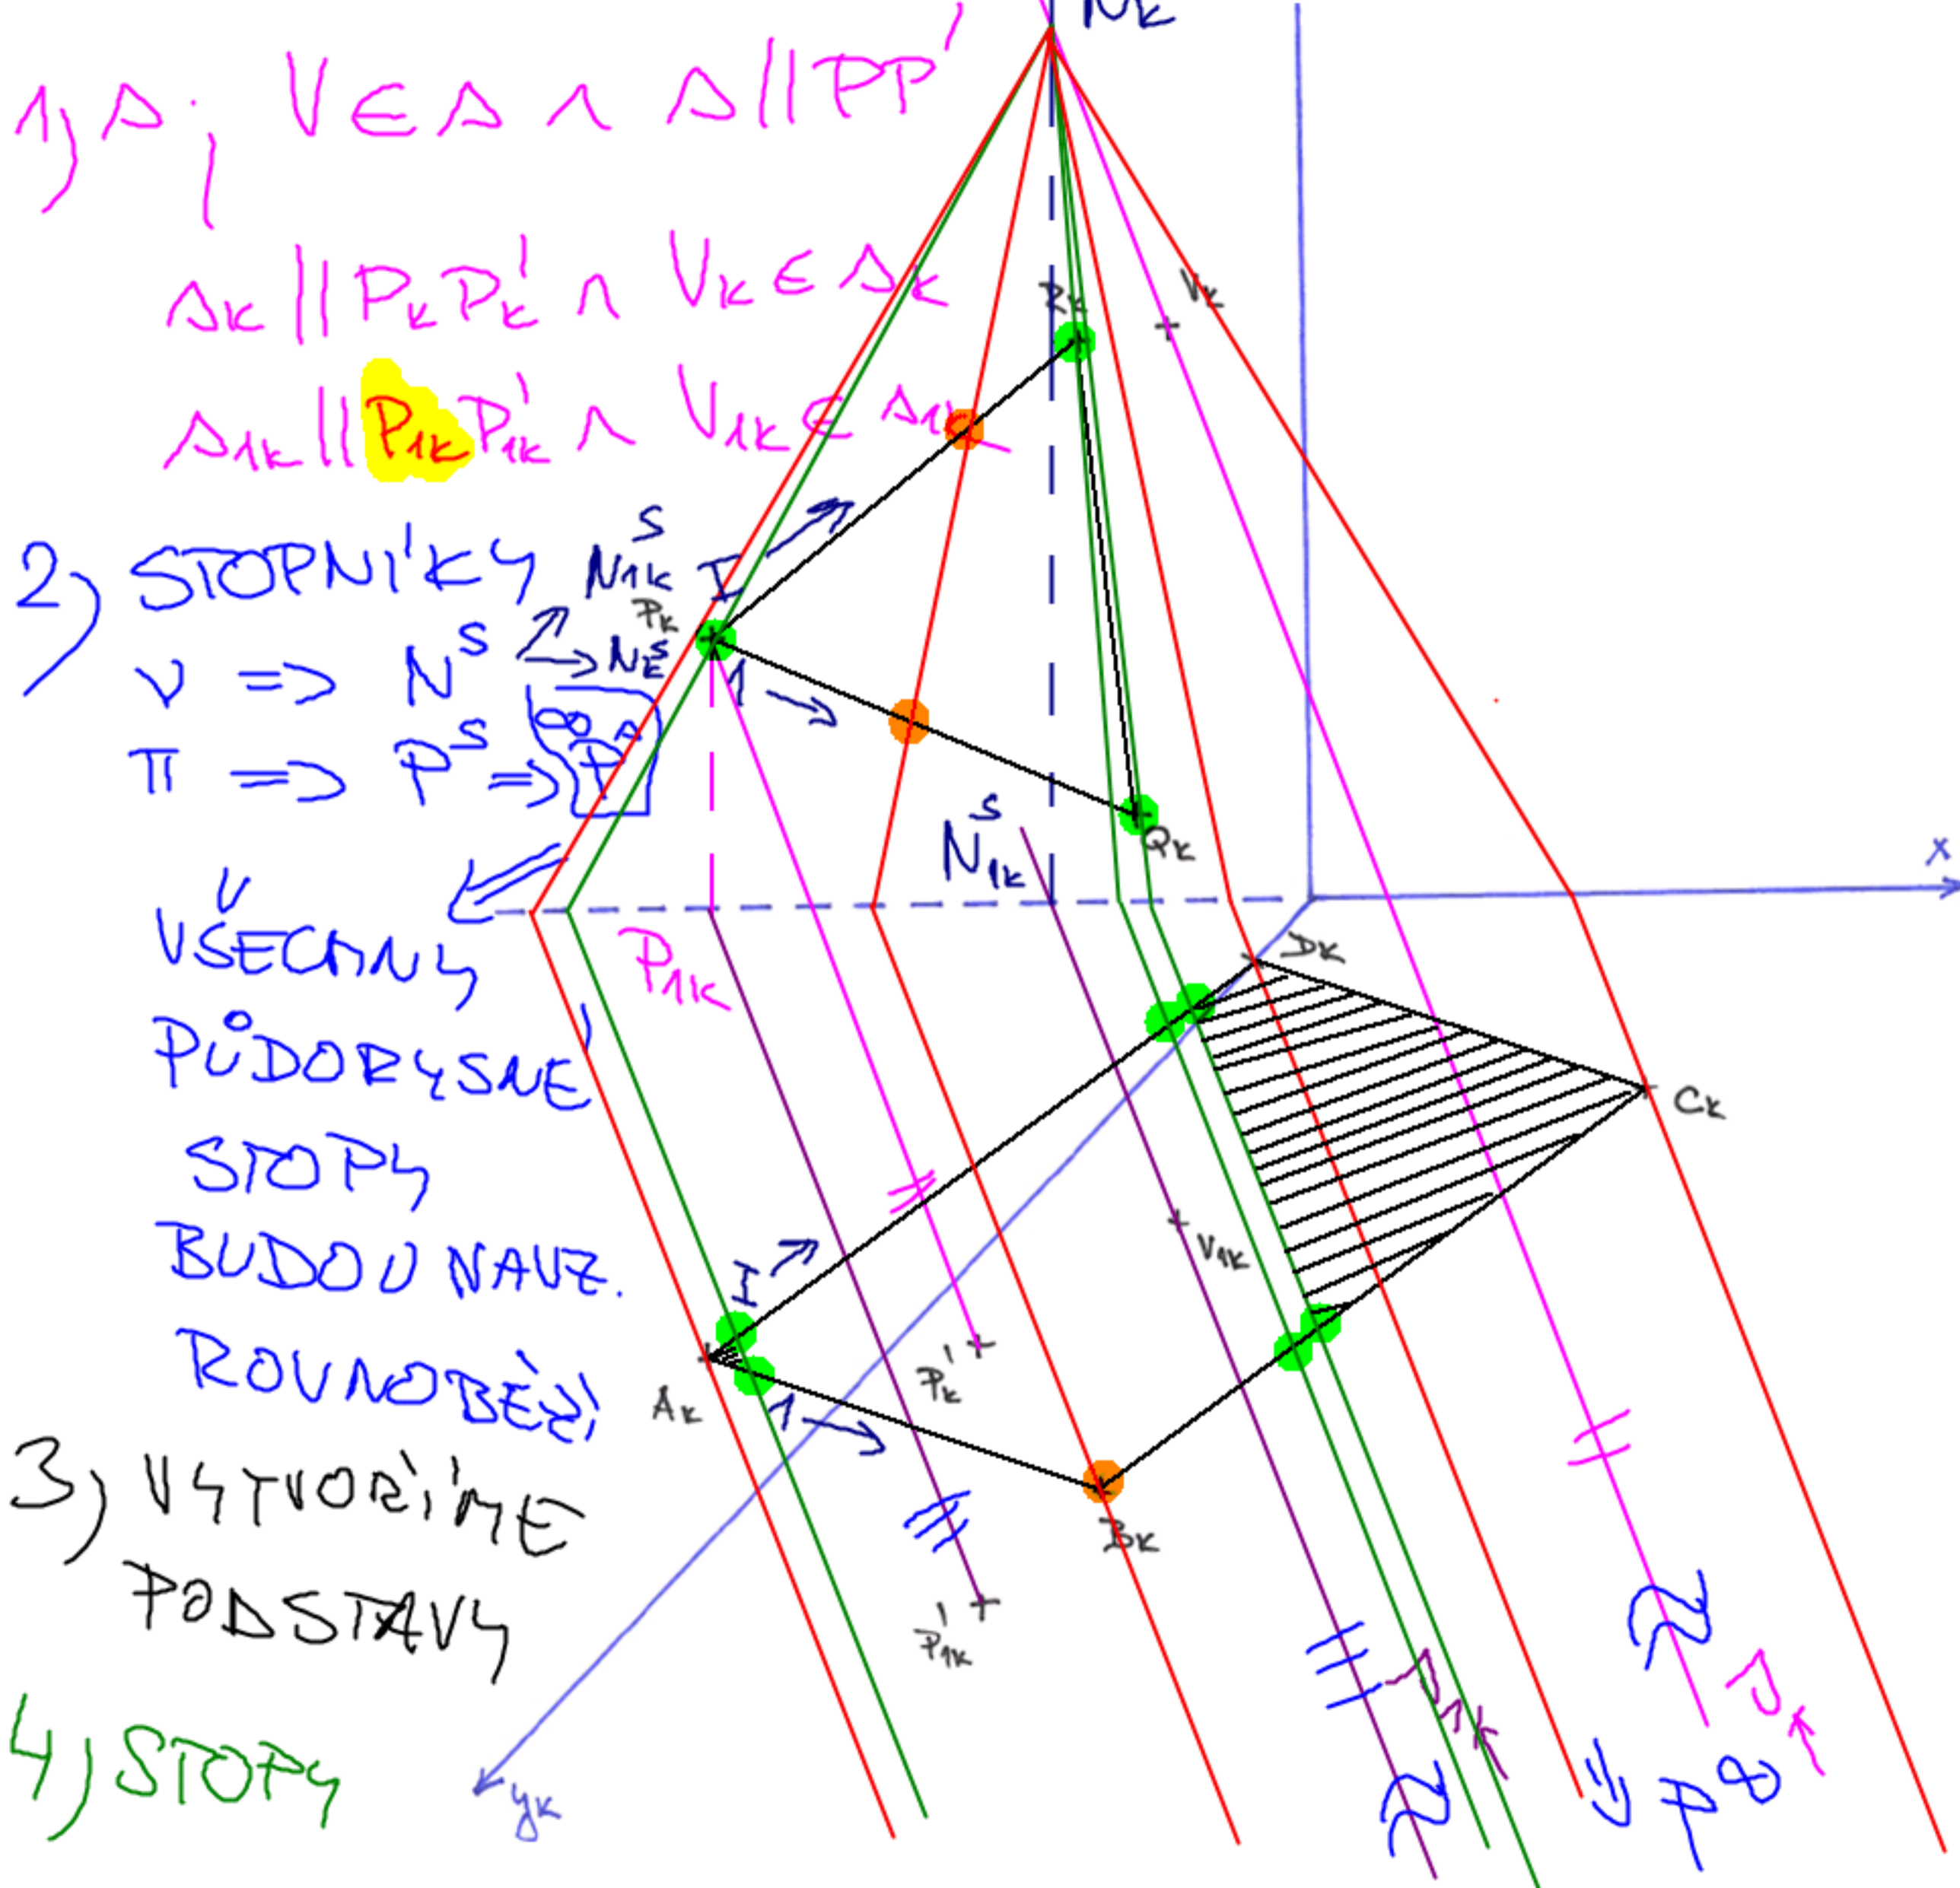 1) s; V ∈ s ∧ s || PP'
sk || PkPk' ∧ Vk ∈ sk
s1k || P1kP1k' ∧ V1k ∈ s1k
2) STOPNÍKY
ν => Nˢ
π => Pˢ => P∞
VŠECHNY
PŮDORYSNÉ
STOPY
BUDOU NAVZ.
ROVNOBĚŽ.
3) VYTVOŘÍME
PODSTAVY
4) STOPY
Nk
Rk
Vk
N1kˢ
I
Pk
Nkˢ
1
N1kˢ
Qk
x
P1k
Dk
Ck
V1k
I
Ak
1
Pk'
Bk
P1k'
yk
s1k
sk
P∞